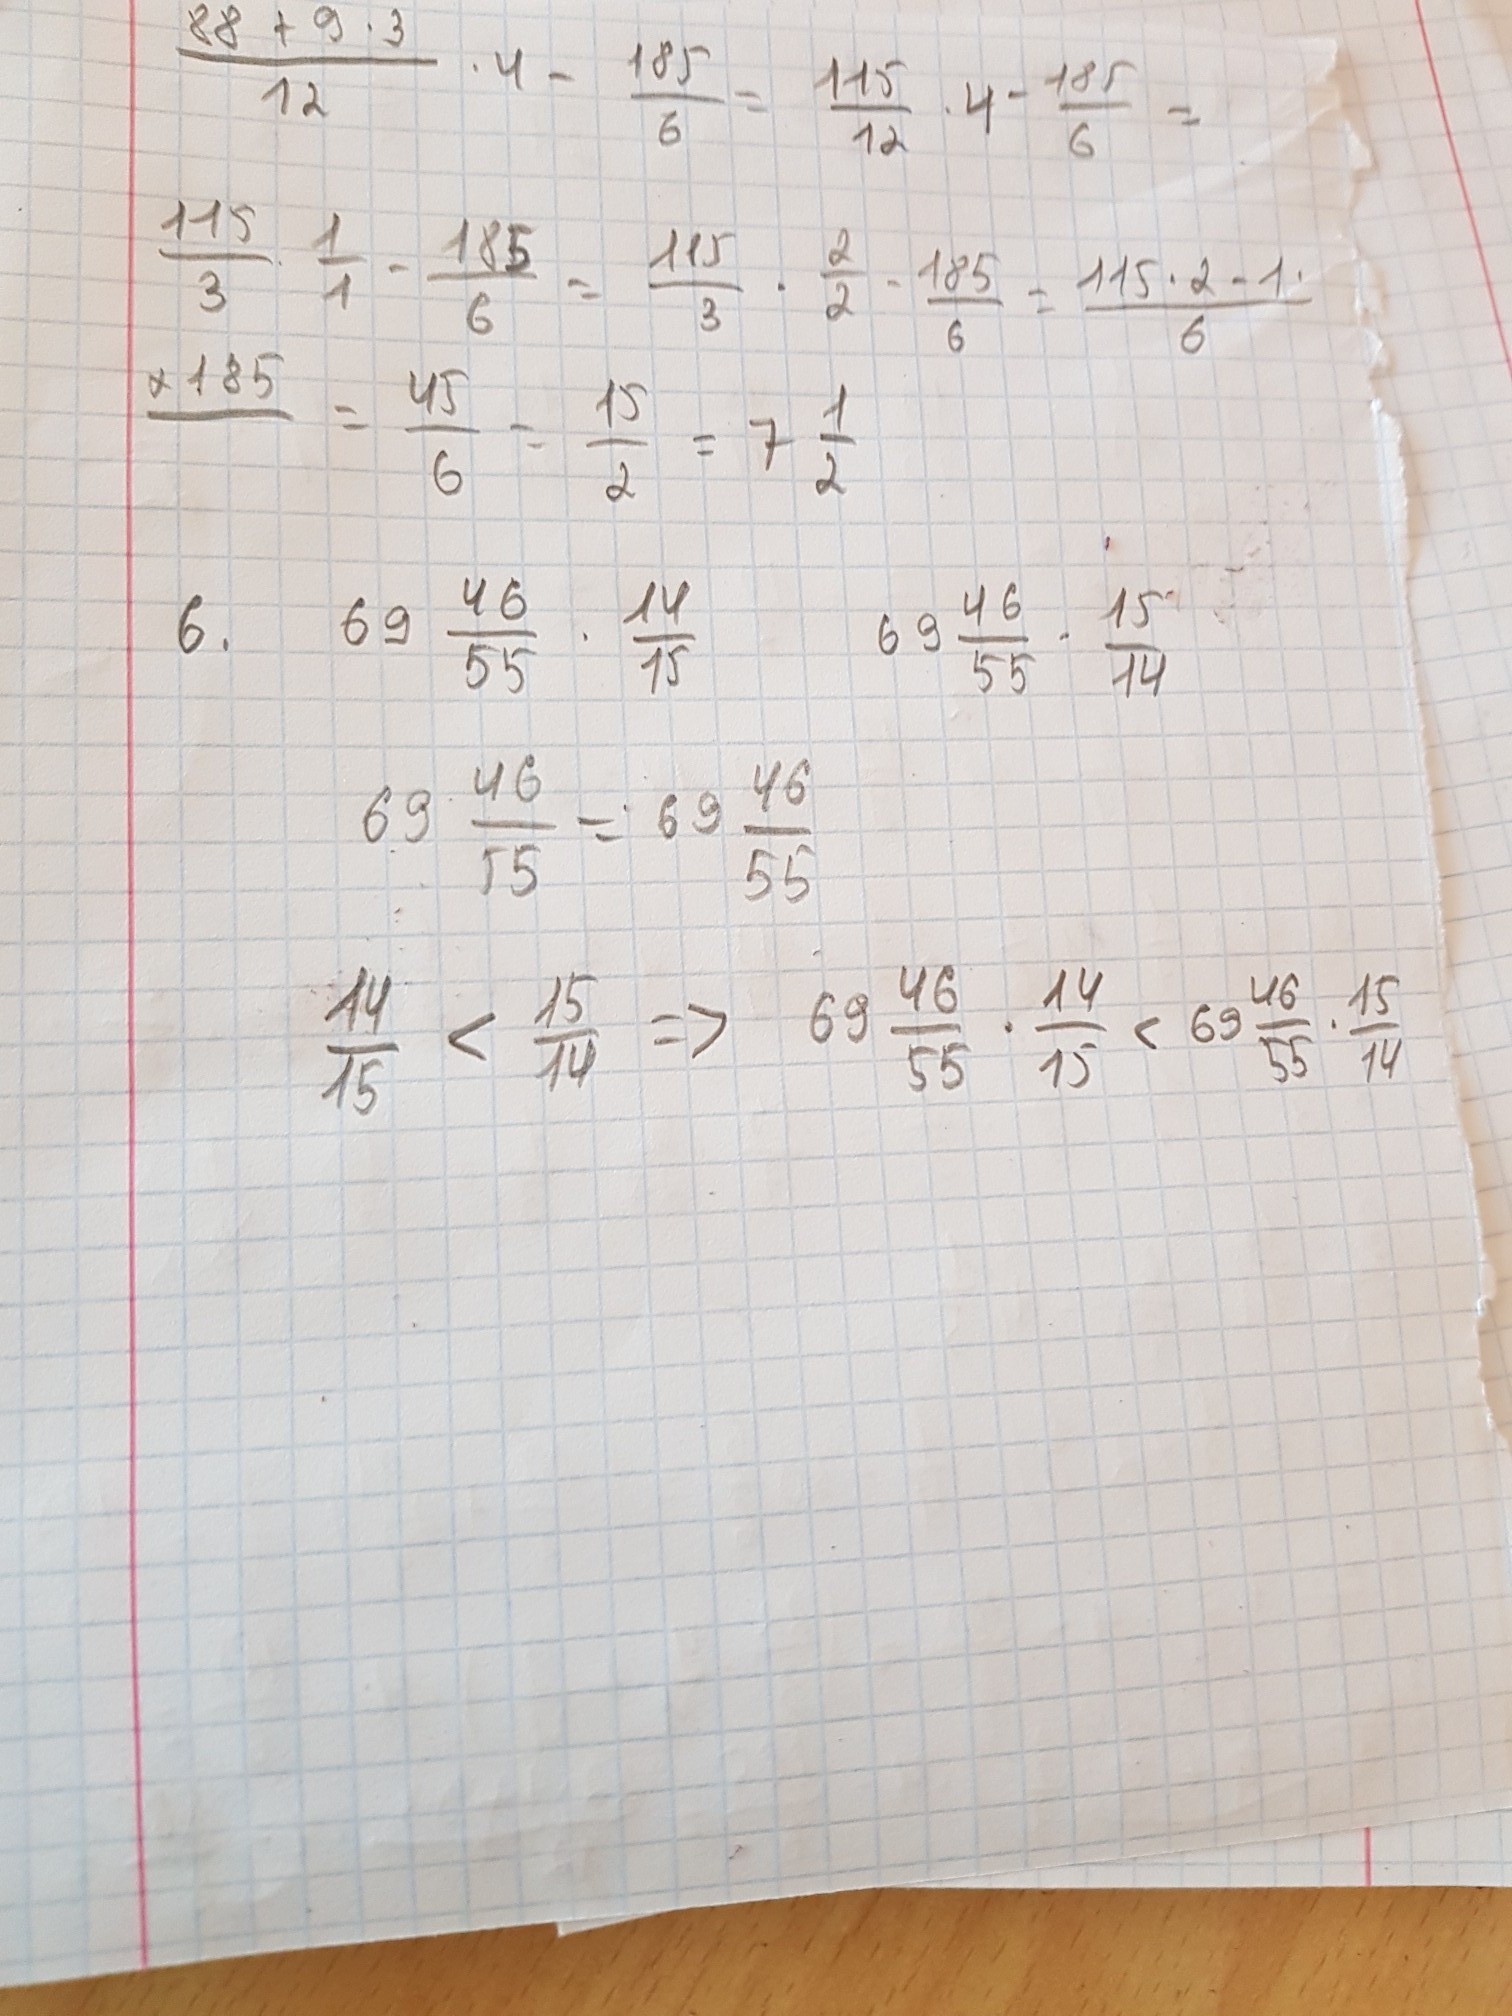 (88 + 9 · 3)/12 · 4 - 185/6 = 115/12 · 4 - 185/6 =
115/3 · 1/1 - 185/6 = 115/3 · 2/2 - 185/6 = (115 · 2 - 1 ·)/6
× 185 = 45/6 = 15/2 = 7 1/2
6. 69 46/55 · 14/15 69 46/55 · 15/14
69 46/55 = 69 46/55
14/15 < 15/14 => 69 46/55 · 14/15 < 69 46/55 · 15/14